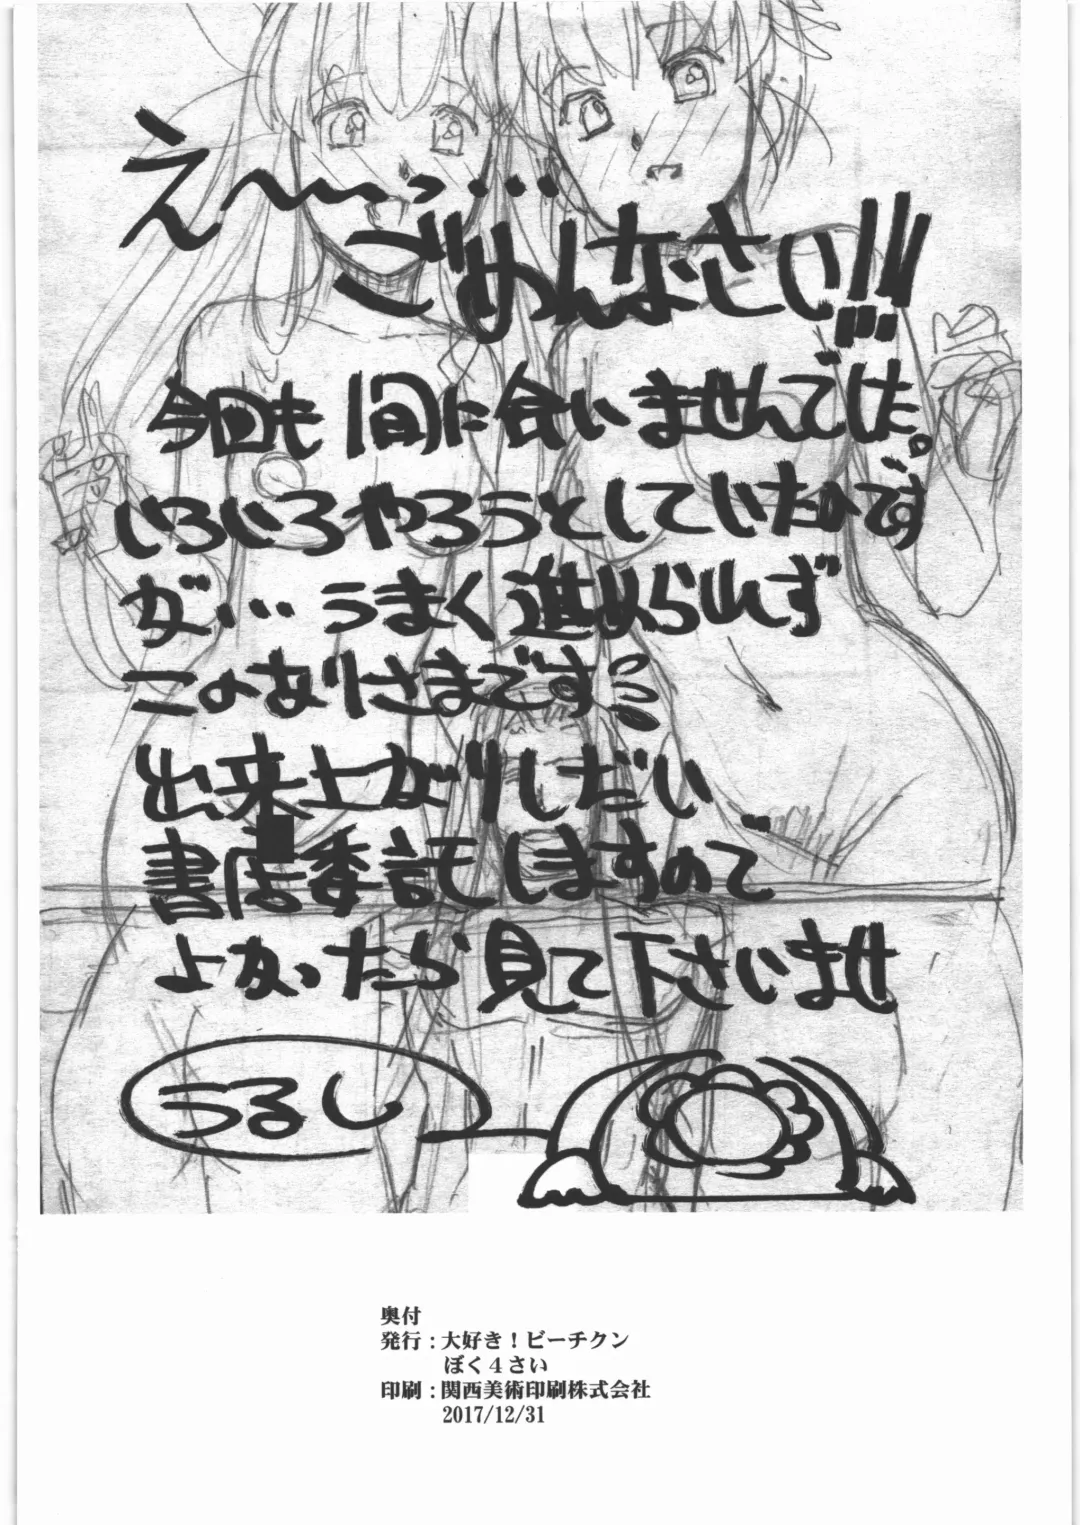 え〜〜っ・・・
ごめんなさい!!!
今回も間に合いませんでした。
いろいろやろうとしていたのです
が・・・うまく進められず
このありさまです
出来上がりしだい
書店委託しますので
よかったら見て下さいませ
うるし
奥付
発行:大好き!ビーチクン
ぼく4さい
印刷:関西美術印刷株式会社
2017/12/31